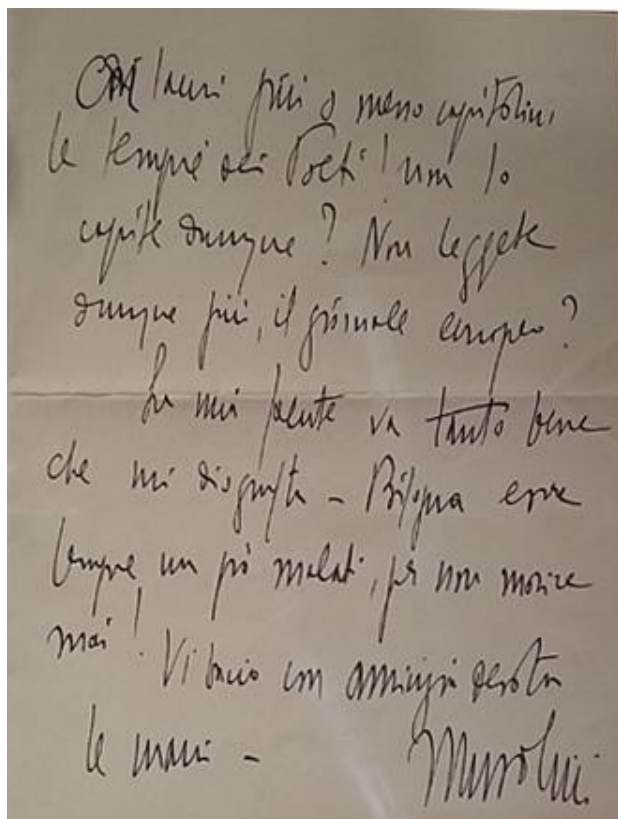 lauri più o meno capitolini
le tempie dei Poeti! non lo
capite dunque? Non leggete
dunque più, il giornale europeo?
La mia salute va tanto bene
che mi disgusta – Bisogna essere
sempre un pò malati, per non morire
mai! Vi bacio con amicizia devota
le mani – Mussolini